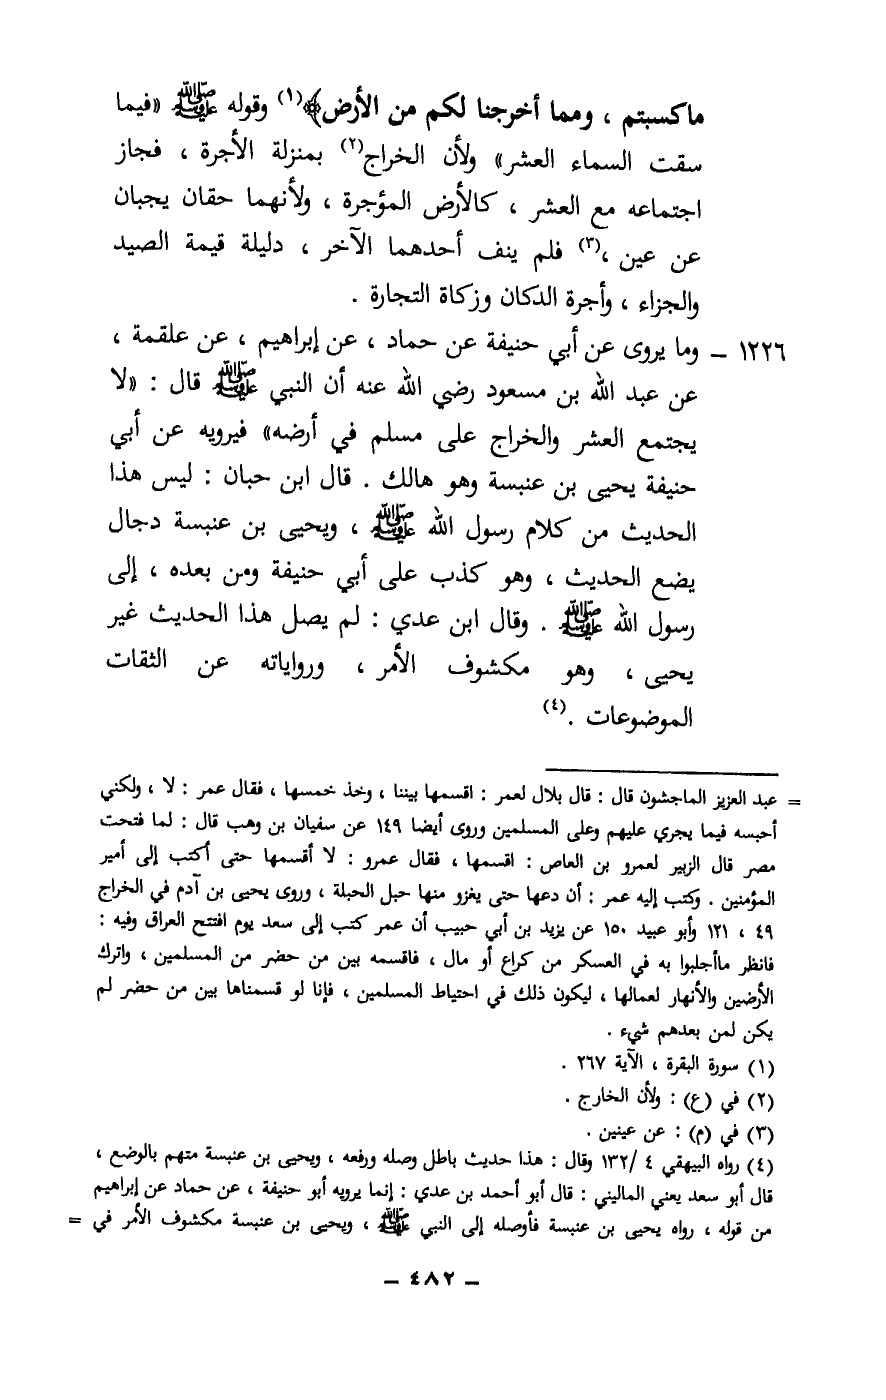 ماكسبتم ، ومما أخرجنا لكم من الأرض﴾(١) وقوله ﷺ «فيما
سقت السماء العشر» ولأن الخراج(٢) بمنزلة الأجرة ، فجاز
اجتماعه مع العشر ، كالأرض المؤجرة ، ولأنهما حقان يجبان
عن عين ،(٣) فلم ينف أحدهما الآخر ، دليلة قيمة الصيد
والجزاء ، وأجرة الدكان وزكاة التجارة .
١٢٢٦ – وما يروى عن أبي حنيفة عن حماد ، عن إبراهيم ، عن علقمة ،
عن عبد الله بن مسعود رضي الله عنه أن النبي ﷺ قال : «لا
يجتمع العشر والخراج على مسلم في أرضه» فيرويه عن أبي
حنيفة يحيى بن عنبسة وهو هالك . قال ابن حبان : ليس هذا
الحديث من كلام رسول الله ﷺ ، ويحيى بن عنبسة دجال
يضع الحديث ، وهو كذب على أبي حنيفة ومن بعده ، إلى
رسول الله ﷺ . وقال ابن عدي : لم يصل هذا الحديث غير
يحيى ، وهو مكشوف الأمر ، ورواياته عن الثقات
الموضوعات .(٤)
= عبد العزيز الماجشون قال : قال بلال لعمر : اقسمها بيننا ، وخذ خمسها ، فقال عمر : لا ، ولكني
أحبسه فيما يجري عليهم وعلى المسلمين وروى أيضا ١٤٩ عن سفيان بن وهب قال : لما فتحت
مصر قال الزبير لعمرو بن العاص : اقسمها ، فقال عمرو : لا أقسمها حتى أكتب إلى أمير
المؤمنين . وكتب إليه عمر : أن دعها حتى يغزو منها حبل الحبلة ، وروى يحيى بن آدم في الخراج
٤٩ ، ١٢١ وأبو عبيد ١٥٠ عن يزيد بن أبي حبيب أن عمر كتب إلى سعد يوم افتتح العراق وفيه :
فانظر ماأجلبوا به في العسكر من كراع أو مال ، فاقسمه بين من حضر من المسلمين ، واترك
الأرضين والأنهار لعمالها ، ليكون ذلك في احتياط المسلمين ، فإنا لو قسمناها بين من حضر لم
يكن لمن بعدهم شيء .
(١) سورة البقرة ، الآية ٢٦٧ .
(٢) في (ع) : ولأن الخارج .
(٣) في (م) : عن عينين .
(٤) رواه البيهقي ٤ /١٣٢ وقال : هذا حديث باطل وصله ورفعه ، ويحيى بن عنبسة متهم بالوضع ،
قال أبو سعد يعني الماليني : قال أبو أحمد بن عدي : إنما يرويه أبو حنيفة ، عن حماد عن إبراهيم
من قوله ، رواه يحيى بن عنبسة فأوصله إلى النبي ﷺ ، ويحيى بن عنبسة مكشوف الأمر في =
– ٤٨٢ –